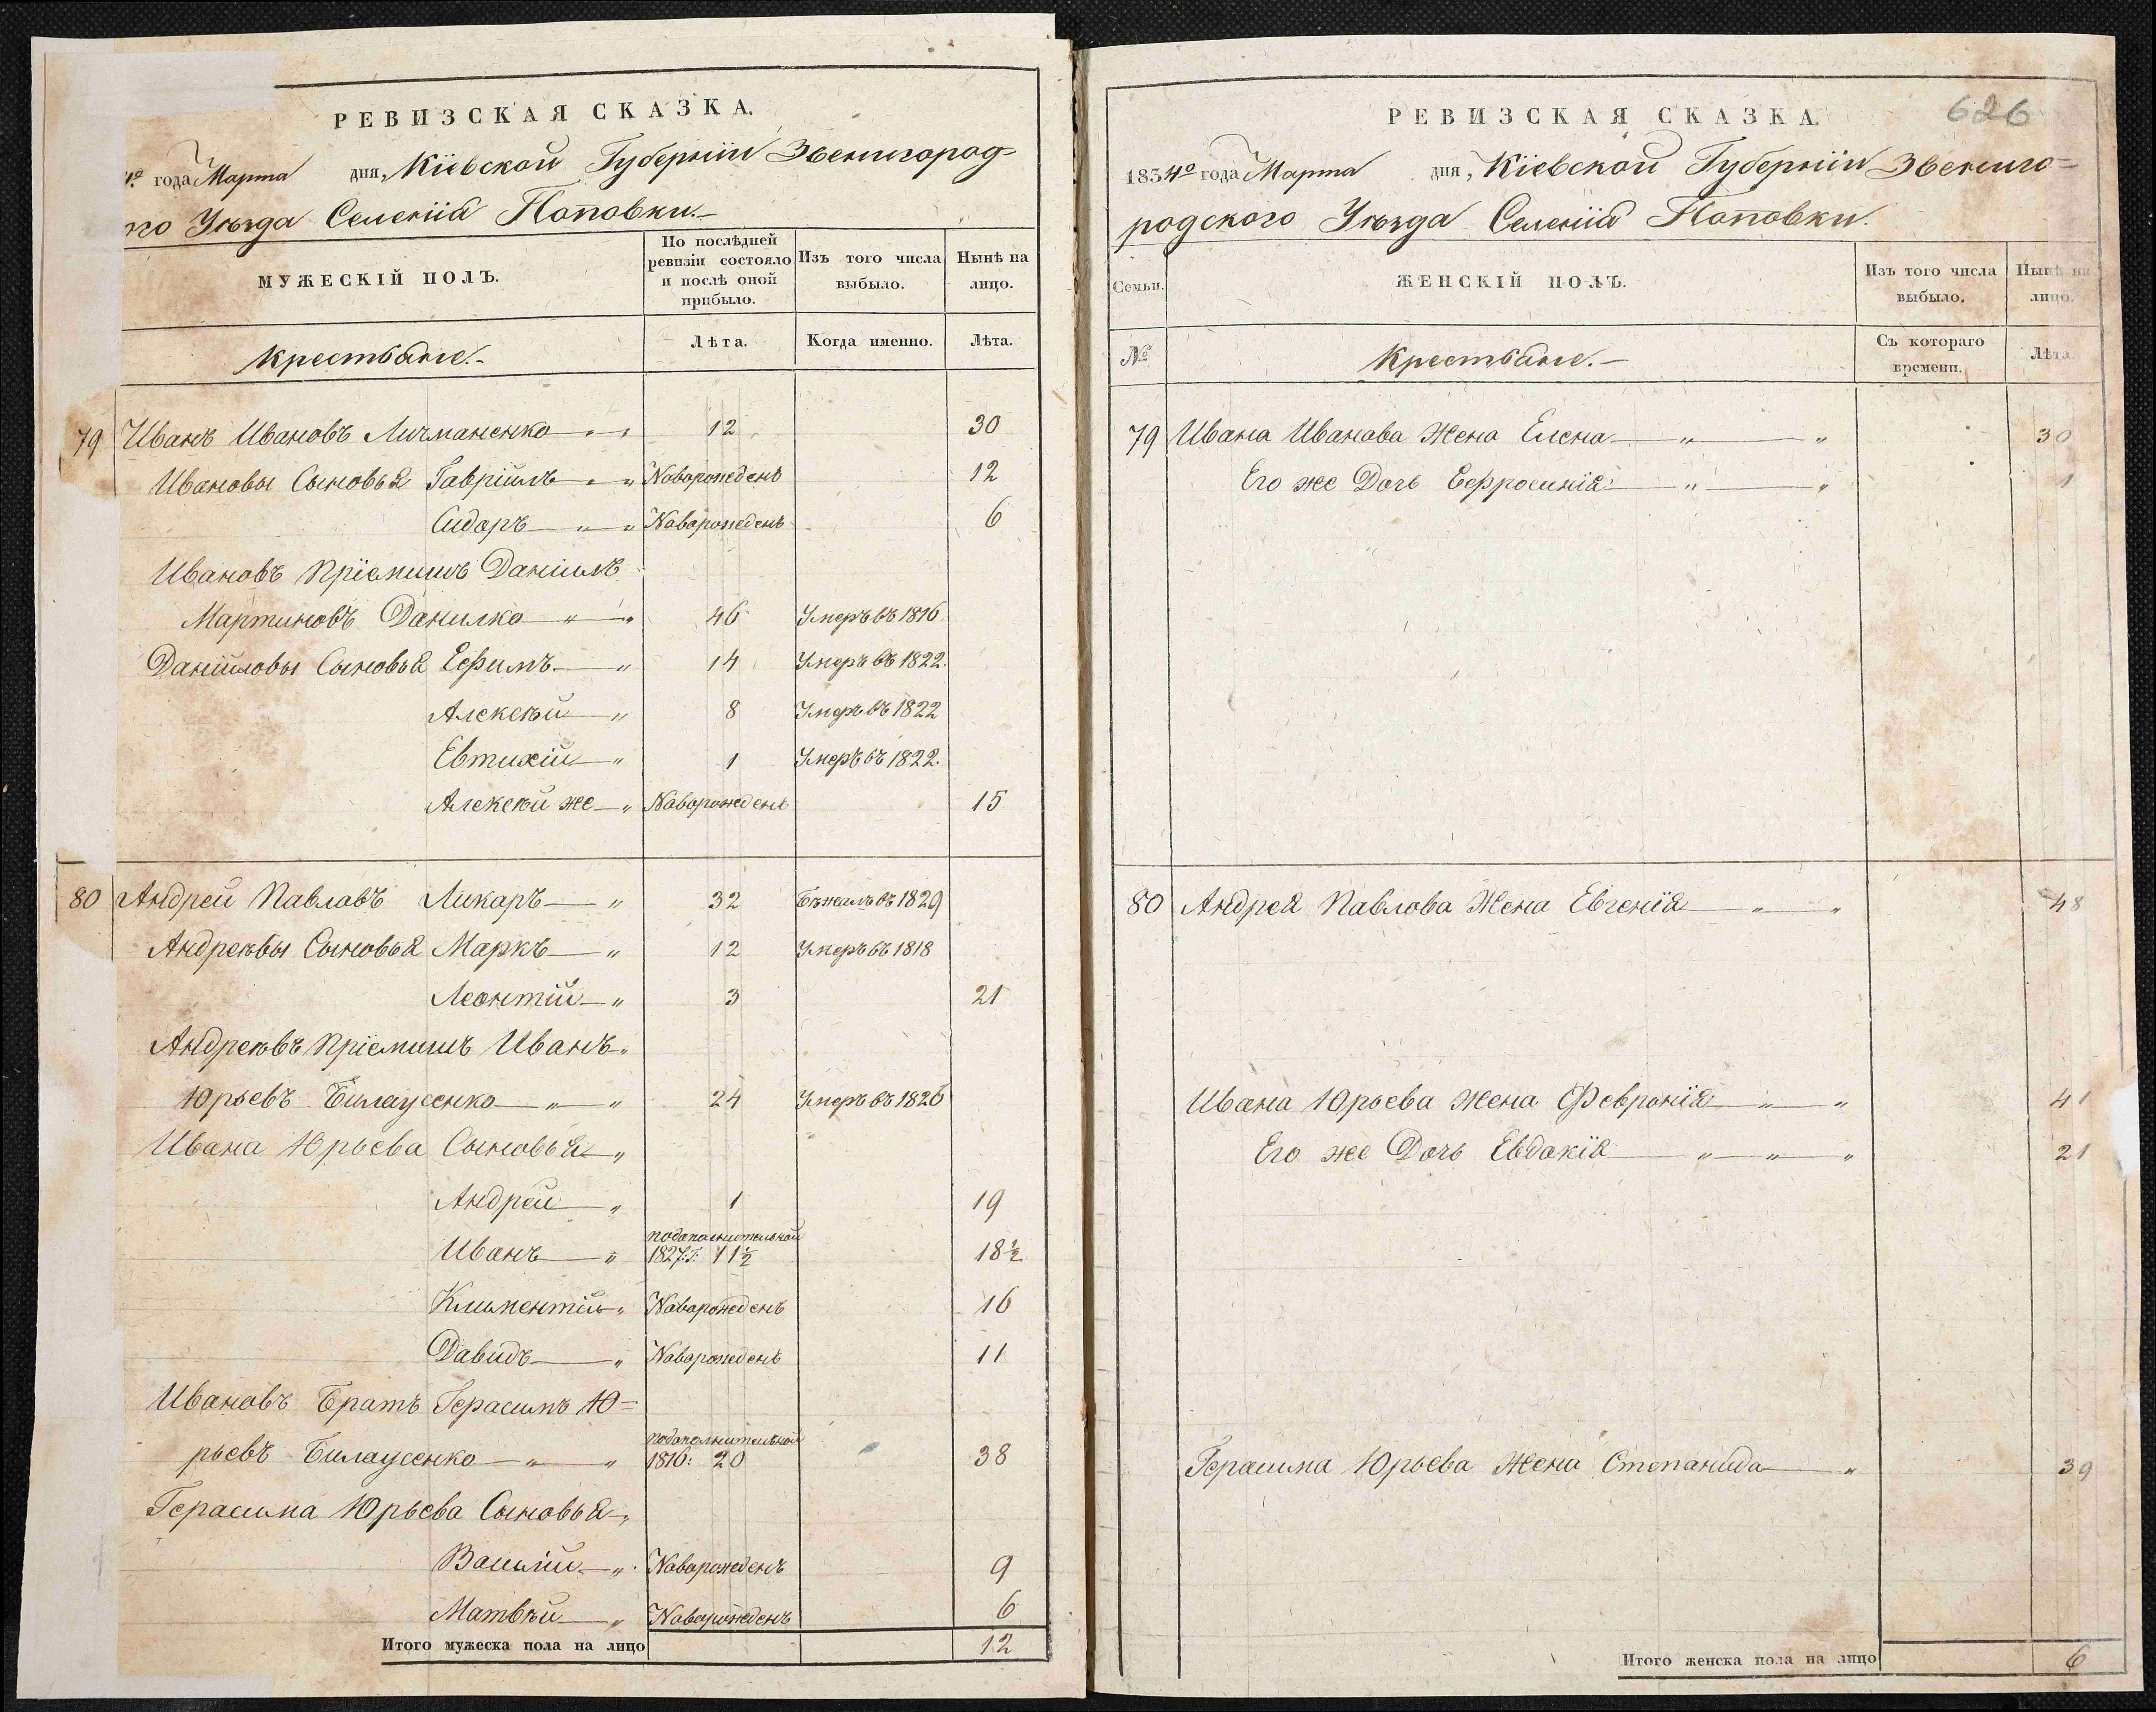 РЕВИЗСКАЯ СКАЗКА.
года Марта дня, Кіевской Губерніи Звенигород=
го Уѣзда Селенія Поповки.
МУЖЕСКІЙ ПОЛЪ.
По послѣдней ревизіи состояло и послѣ оной прибыло.
Изъ того числа выбыло.
Нынѣ на лицо.
Крестьяне.
Лѣта.
Когда именно.
Лѣта.
79 Иванъ Ивановъ Личманенко 12 30
Ивановы Сыновья Гавріилъ Новорожденъ 12
Сидоръ Новорожденъ 6
Ивановъ Пріемышъ Даніилъ
Мартиновъ Данилко 46 Умеръ въ 1816
Даніиловы Сыновья Ефимъ 14 Умеръ въ 1822.
Алексѣй 8 Умеръ въ 1822
Евтихій 1 Умеръ въ 1822.
Алексѣй же Новорожденъ 15
80 Андрей Павловъ Ликаръ 32 Бѣжалъ въ 1829
Андреѣвы Сыновья Маркъ 12 Умеръ въ 1818
Леонтій 3 21
Андреѣвъ Пріемышъ Иванъ
Юрьевъ Билаусенко 24 Умеръ въ 1826
Ивана Юрьева Сыновья
Андрей 1 19
Иванъ подополнительной 1827:г: 11½ 18½
Климентій Новорожденъ 16
Давидъ Новорожденъ 11
Ивановъ Братъ Герасимъ Ю=
рьевъ Билаусенко подополнительной 1816: 20 38
Герасима Юрьева Сыновья
Василій Новорожденъ 9
Матвѣй Новорожденъ 6
Итого мужеска пола на лицо 12
РЕВИЗСКАЯ СКАЗКА.
626
1834го года Марта дня, Кіевской Губерніи Звениго=
родского Уѣзда Селенія Поповки.
Семьи.
ЖЕНСКІЙ ПОЛЪ.
Изъ того числа выбыло.
Нынѣ на лицо.
№
Крестьяне.
Съ котораго времени.
Лѣта
79 Ивана Иванова Жена Елена 30
Его же Дочь Ефросинія 1
80 Андрея Павлова Жена Евгенія 48
Ивана Юрьева Жена Февронія 41
Его же Дочь Евдокія 21
Герасима Юрьева Жена Степанида 39
Итого женска пола на лицо 6